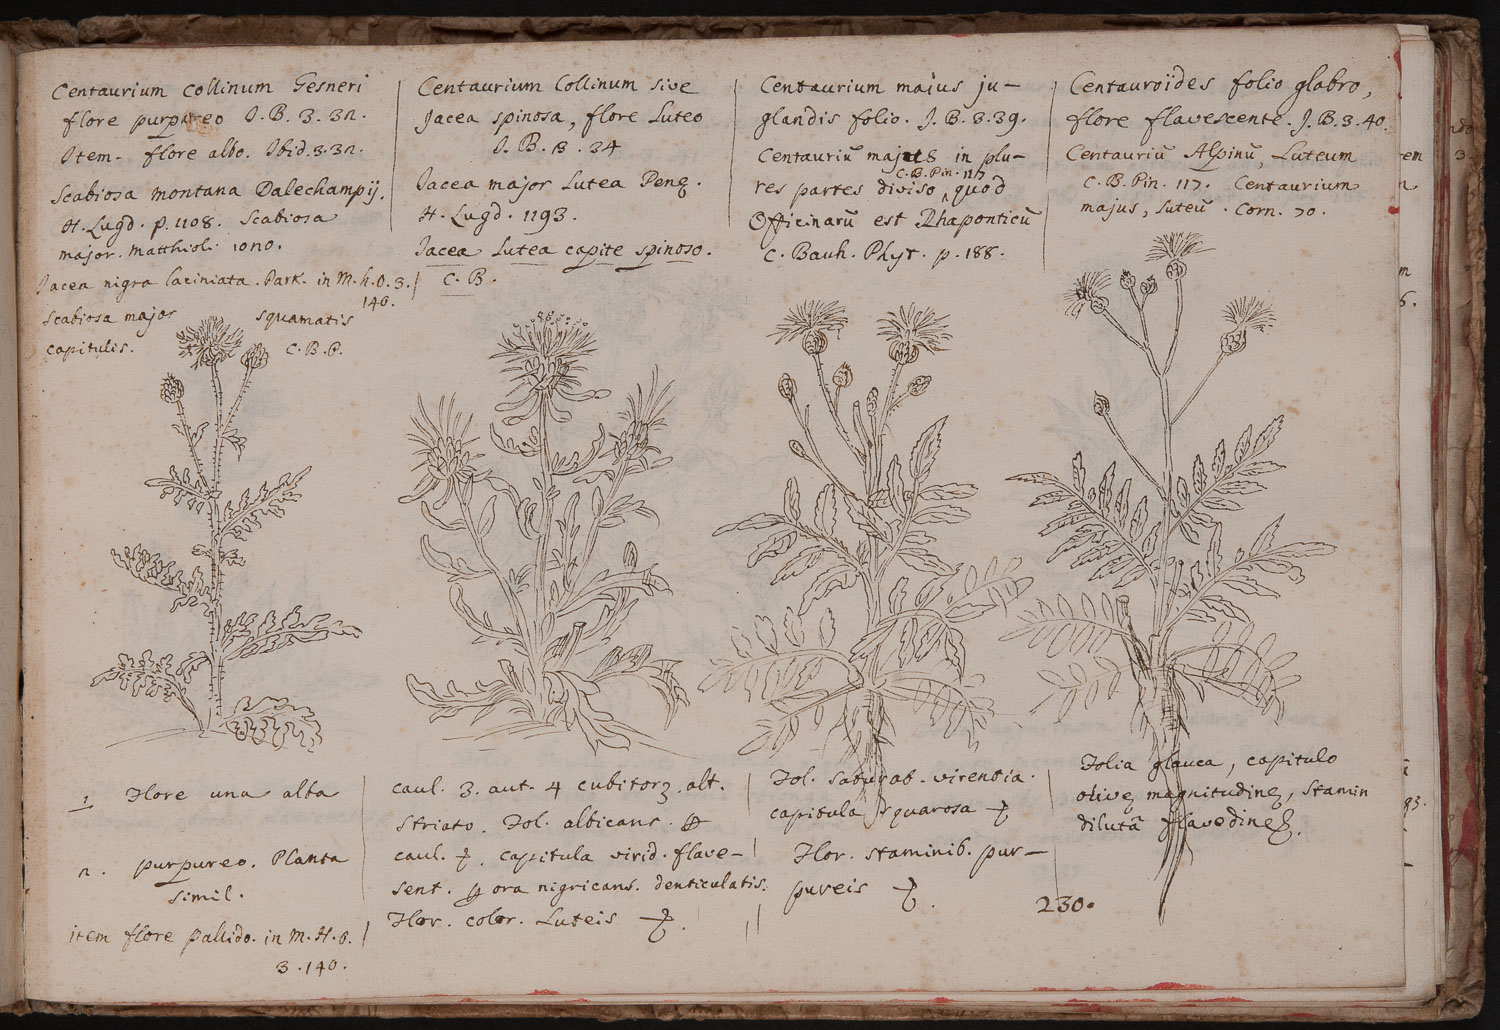 Centaurium collinum Gesneri
flore purpureo J. B. 3. 32.
Item flore albo. Ibid. 3. 32.
Scabiosa montana Dalechampij.
H. Lugd. p. 1108. Scabiosa
major. Matthioli. 1020.
Jacea nigra laciniata. Park. in M. h. O. 3.
140.
Scabiosa major squamatis
capitulis. C. B. P.
Centaurium Collinum sive
Jacea spinosa, flore Luteo
J. B. 3. 34
Jacea major Lutea Penq.
H. Lugd. 1193.
Jacea Lutea capite spinoso.
C. B.
Centaurium majus ju-
glandis folio. J. B. 3. 39.
Centauriū majus in plu-
C. B. Pin. 117
res partes diviso, quod
Officinarū est Rhaponticū
C. Bauh. Phyt. p. 188.
Centauroïdes folio glabro,
flore flavescente. J. B. 3. 40.
Centauriū Alpinū, Luteum
C. B. Pin. 117. Centaurium
majus, luteū. Corn. 70.
1. Flore una alba
2. purpureo. Planta
simil.
item flore pallido. in M. H. O.
3. 140.
caul. 3. aut. 4 cubitorꝫ. alt.
striato. Fol. albicans.
caul. capitula virid. flave-
sent. ora nigricans. denticulatis.
Flor. color. Luteis
Fol. saturat. virentia.
capitula squarosa
Flor. staminib. pur-
pureis
230.
Folia glauca, capitulo
olivę magnitudinę, stamin
dilutā flavedinę.